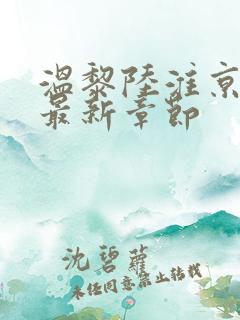 温黎陆淮京
最新章节
沈碧萝
未经同意禁止转载